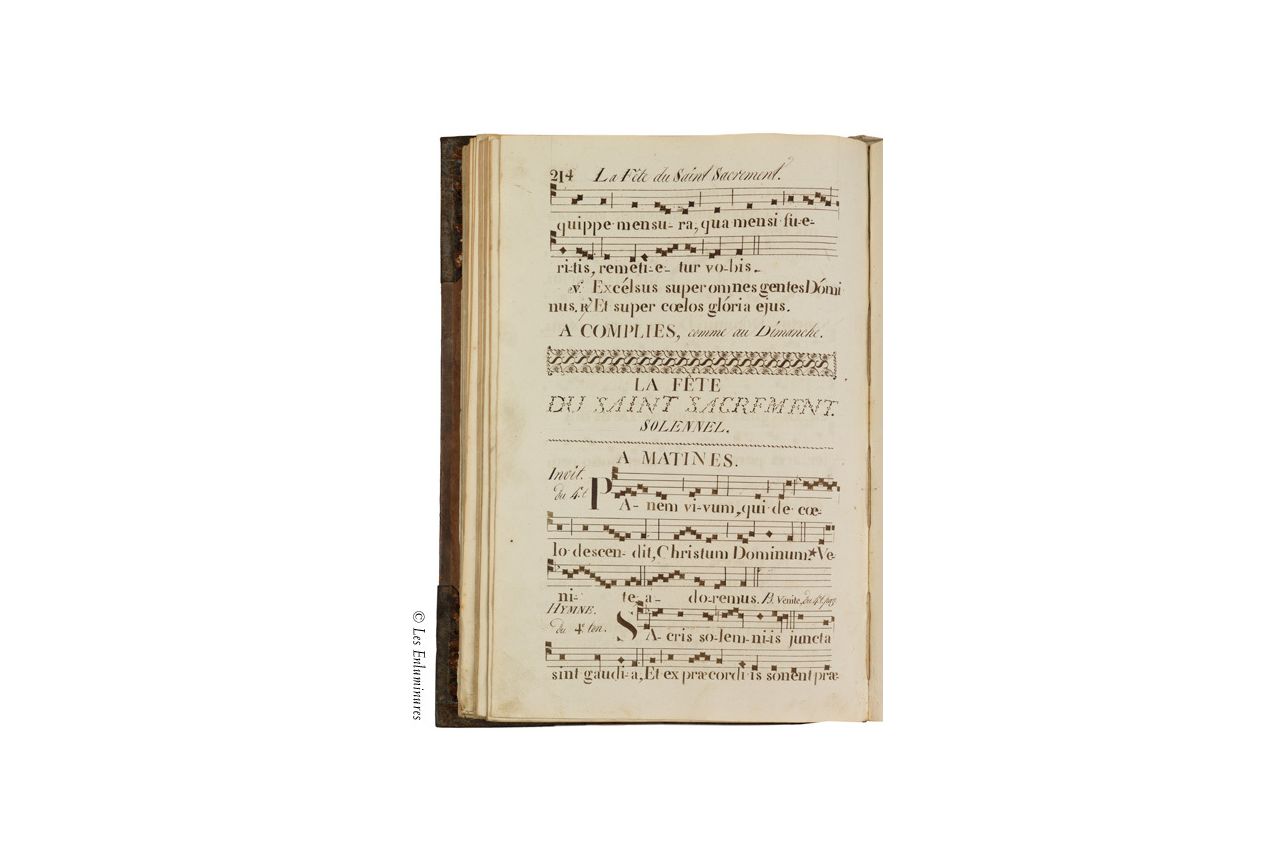 214 La Fête du Saint Sacrement.
quippe mensu-ra, qua mensi fu-e-
ri-tis, remeti-e-tur vo-bis.
℣. Excélsus super omnes gentes Dómi
nus. ℟. Et super cœlos glória ejus.
A COMPLIES, comme au Dimanche.
LA FÊTE
DU SAINT SACREMENT.
SOLENNEL.
A MATINES.
Invit.
du 4. t.
PA-nem vi-vum, qui de cœ-
lo descen-dit, Christum Dominum.* Ve-
ni-te a-do-remus. Ps. Venite, du 4. t.
HYMNE.
du 4. ton.
SA-cris so-lem-ni-is juncta
sint gaudi-a, Et ex præcordi-is sonent præ-
© Les Enluminures